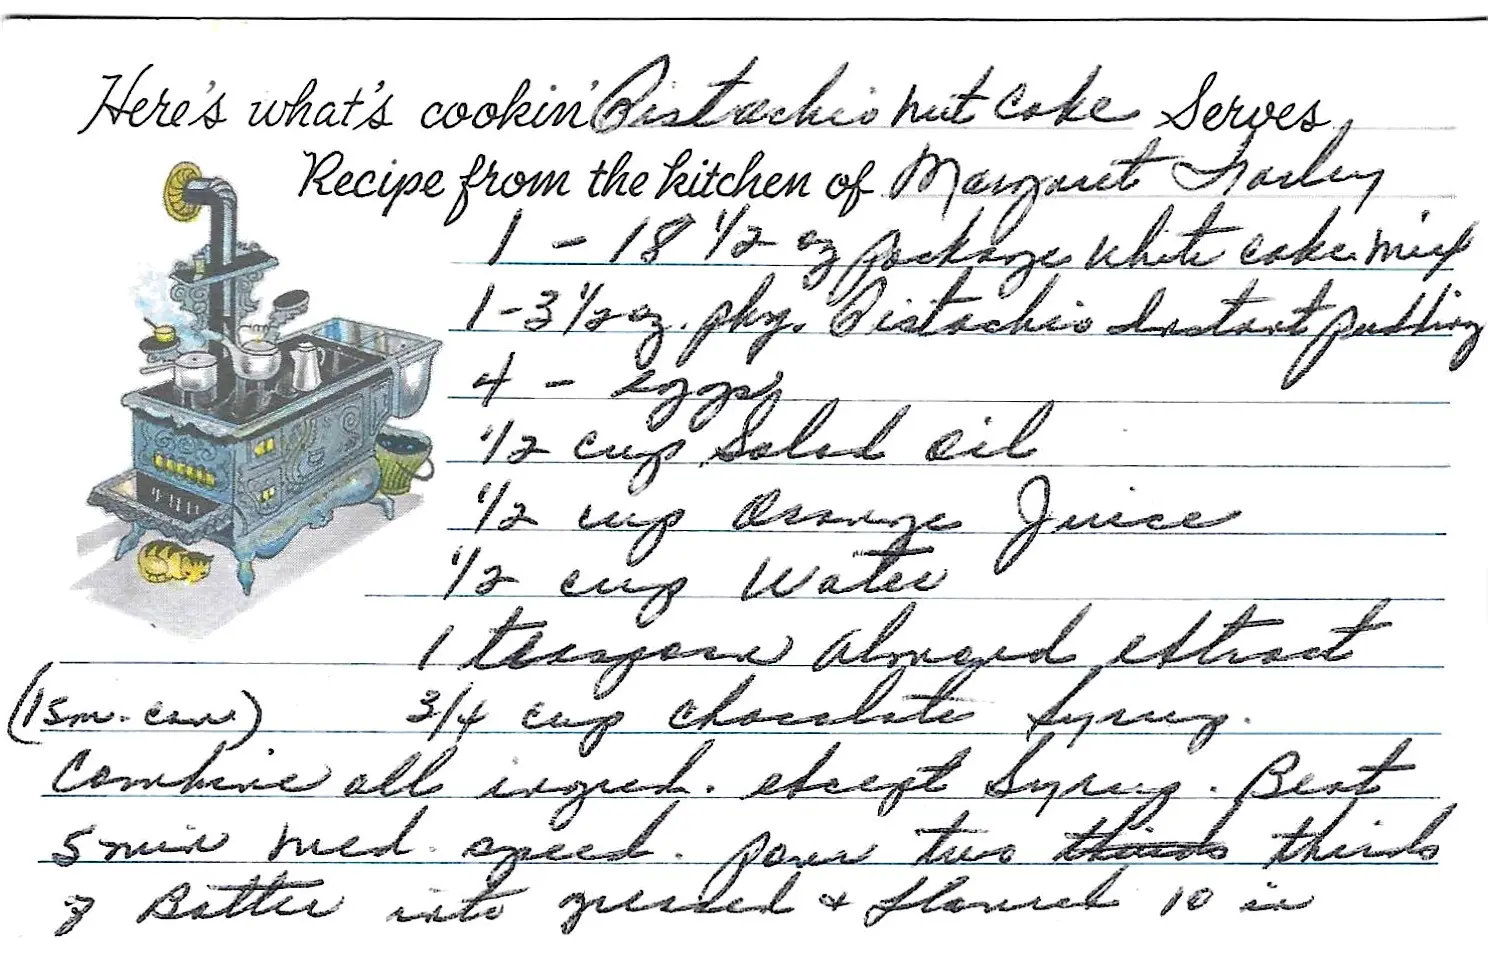 Here's what's cookin' Pistachio nut Cake Serves
Recipe from the kitchen of Margaret
1 - 18 1/2 oz package white cake mix
1-3 1/2 oz. pkg. Pistachio Instant pudding
4 - eggs
1/2 cup Salad oil
1/2 cup Orange Juice
1/2 cup Water
1 teaspoon almond extract
(1 sm. can) 3/4 cup chocolate Syrup.
Combine all ingred. except Syrup. Beat
5 min med. speed. pour two thirds thirds
of Batter into greased + floured 10 in